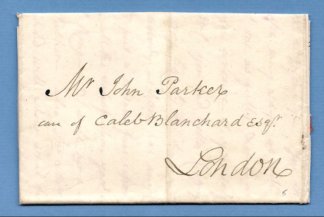 Mr John Parker
care of Caleb Blanchard Esqr.
London